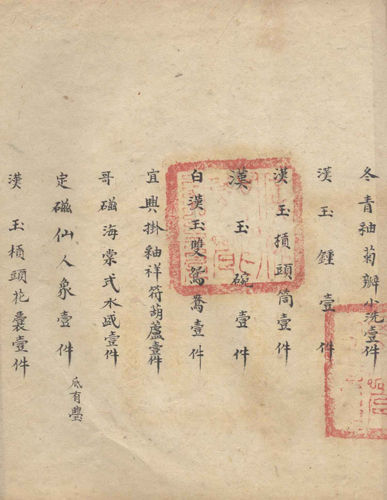 冬青釉菊瓣小洗壹件
漢玉鍾壹件
漢玉槓頭筒壹件
漢玉碗壹件
白漢玉雙鴛鴦壹件
宜興掛釉祥符葫蘆壹件
哥磁海棠式水盛壹件
定磁仙人象壹件 有璺
漢玉槓頭花囊壹件